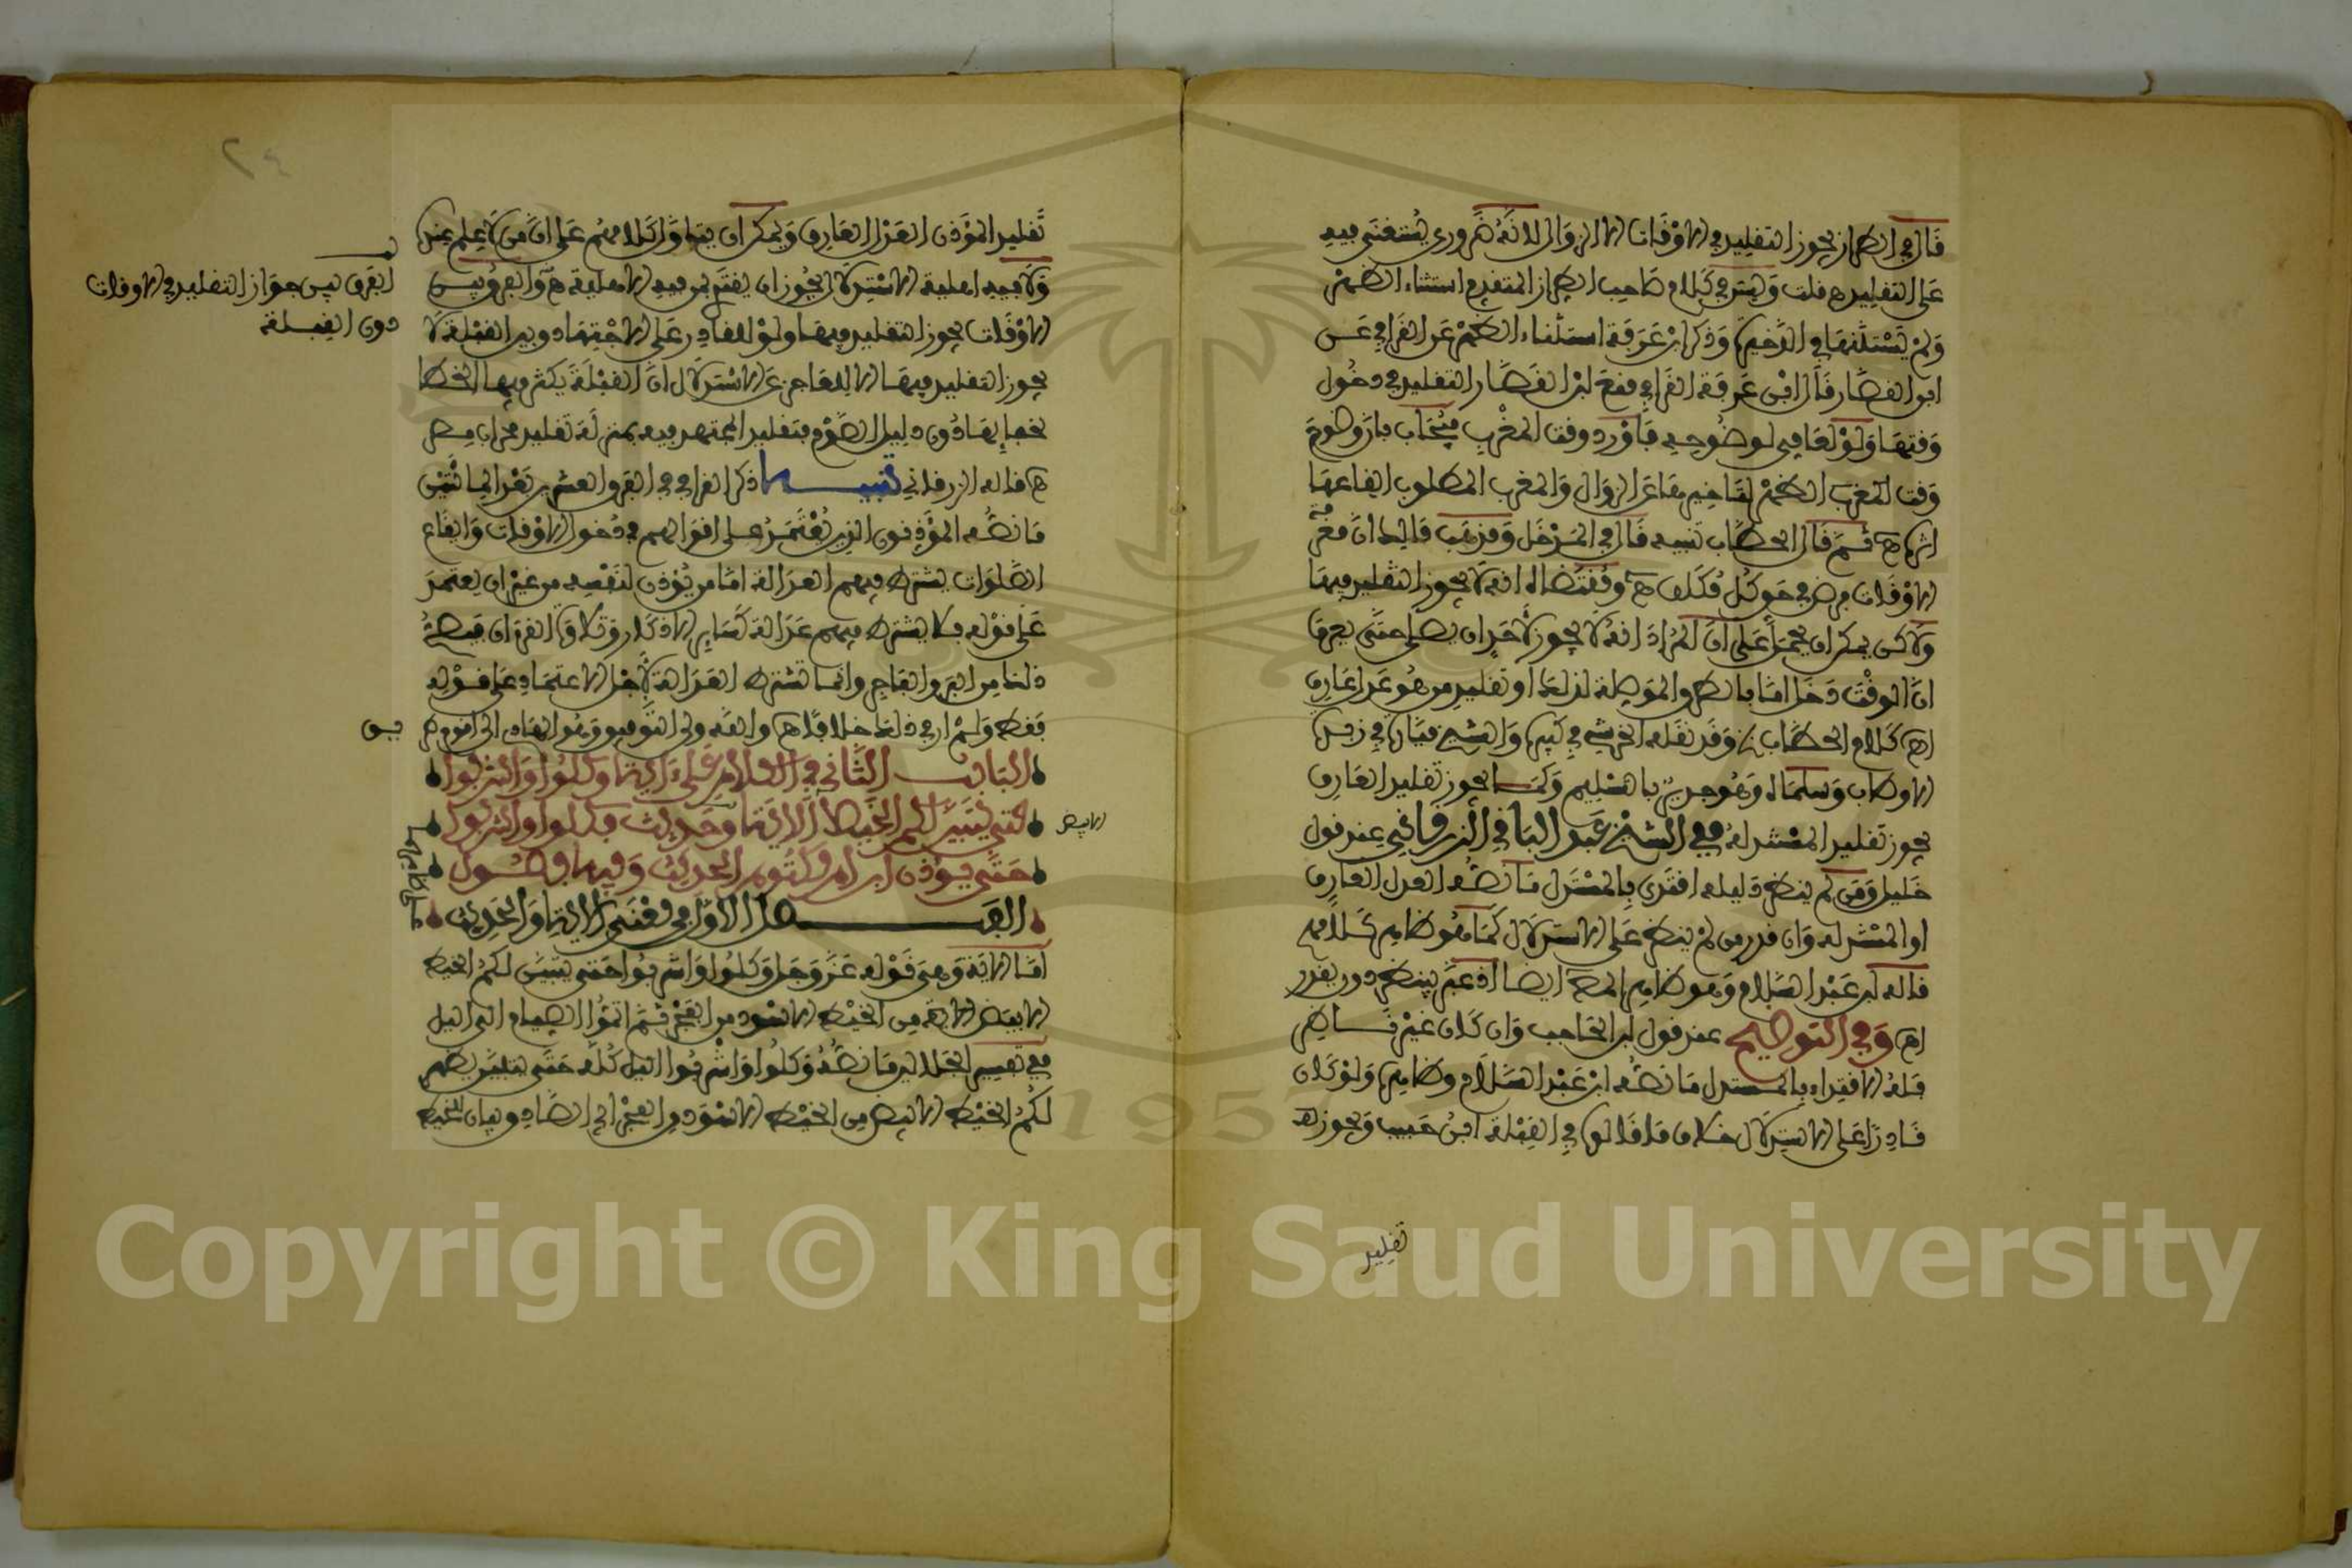 قال في الطراز يجوز التقليد في الاوقات الا الزوال لانه ضروري يستغنى فيه
على التقليد ه قلت وليس في كلام صاحب الطراز المتقدم استثناء الظهر
ولم يستثنها في الذخيرة وذكر ابن عرفة استثناء الظهر عن القرافي عن
ابن القصار قال ابن عرفة القرافي منع ابن القصار التقليد في دخول
وقتها ولو لعامي لوضوحه فاورد وقت المغرب فيجاب بان وضوح
وقت المغرب
اثرها ه ثم قال الحطاب تنبيه قال في المدخل ومذهب مالك ان معرفة
الاوقات فرض في حق كل مكلف ه ومقتضاه انه لا يجوز التقليد فيها
ولاكن يمكن ان يحمل على ان المراد انه لا يجوز لاحد ان يصلي حتى يعرف
ان الوقت دخل اما بالطرق الموصلة لذلك او تقليد من هو عدل عارف
اه كلام الحطاب وقد نقله الخرشي في كبيره والشيخ ميارة في
وسلماه وهو جدير بالتسليم وكما يجوز تقليد العارف
يجوز تقليد المستدل ففي الشيخ عبد الباقي الزرقاني عند قول
خليل ومن لم ينظر دليله اقتدى بالمستدل ما نصه العدل العارف
او المستدل له وان قدر من لم ينظر على الاستدلال كما هو ظاهر كلامهم
قاله ابن عبد السلام وهو ظاهر المص ايضا اذ عبر بينظر دون يقدر
اه وفي التوضيح عند قول ابن الحاجب وان كان غير ناظر
فله الاقتداء بالمستدل ما نصه ابن عبد السلام وظاهره ولو كان
قادرا على الاستدلال خلاف ما قالوه في القبلة ابن حبيب ويجوز
تقليد
تقليد المؤذن العدل العارف ويمكن ان يتاول كلامهم على ان من لا علم عنده
ولا فيه اهلية الاستدلال يجوز ان يقتدي بمن فيه الاهلية ه والفرق بين
الاوقات يجوز التقليد فيها ولو للقادر على الاجتهاد وبين القبلة لا
يجوز التقليد فيها الا للعاجز عن الاستدلال ان القبلة يكثر فيها الخطا
لخفائها دون دليل الصوم فتقليد المجتهد فيه بمنزلة تقليد محراب مصر
ه قاله الزرقاني تنبيه ذكر القرافي في الفرق العشرين بعد المائتين
ما نصه المؤذنون الذين يعتمد على اقوالهم في دخول الاوقات وايقاع
الصلوات يشترط فيهم العدالة اما من يؤذن لنفسه من غير ان يعتمد
على قوله فلا يشترط فيهم عدالة كساير الاذكار وتلاوة القرءان فيصح
ذلك من البر والفاجر وانما تشترط العدالة لاجل الاعتماد على قوله
فقط ولم ار في ذلك خلافا ه والله ولي التوفيق وهو الهادي الى اقوم
الباب الثاني في الكلام على ءاية وكلوا واشربوا
حتى يتبين لكم الخيط الاية وحديث فكلوا واشربوا
حتى يؤذن ابن ام مكتوم الحديث وفيه فصول
الفصل الاول في معنى الاية والحديث
اما الاية وهي قوله عز وجل وكلوا واشربوا حتى يتبين لكم الخيط
الابيض الاية من الخيط الاسود من الفجر ثم اتموا الصيام الى اليل
ففي تفسير الجلالين ما نصه وكلوا واشربوا اليل كله حتى يتبين يظهر
لكم الخيط الابيض من الخيط الاسود من الفجر اي الصادق بيان للخيط
الفرق بين جواز التقليد في الاوقات
دون القبلة
الابيض